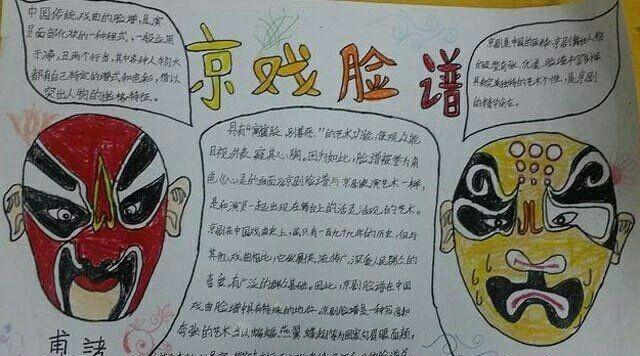 京戏脸谱
中国传统戏曲的脸谱,是演
员面部化妆的一种程式,一般应用
于净、丑两个行当,其中各种人物大
都有自己特定的谱式和色彩,借以
突出人物的性格特征。
京剧是中国的国粹,京剧舞台人物
的造型 优美,脸谱丰富多样
具有 独特的艺术个性,是京剧
的精华所在。
具有“寓褒贬、别善恶”的艺术功能,使观众能
目视外表,窥其心胸。因为如此,脸谱被誉为角
色心灵的画面。京剧脸谱与京剧表演艺术一样,
是和演员一起出现在舞台上的活灵活现的艺术。
京剧在中国戏曲史上,虽只有一百九十九年的历史,但与
其他戏曲相比,它发展快、流传广、深受人民群众的
喜爱,有广泛的群众基础。因此,京剧脸谱在中国
戏曲脸谱拥有特殊的地位。京剧脸谱是一种写意和
夸张的艺术,常以蝙蝠、燕翼、蝶翅等为图案勾眉眼面颊,
諸